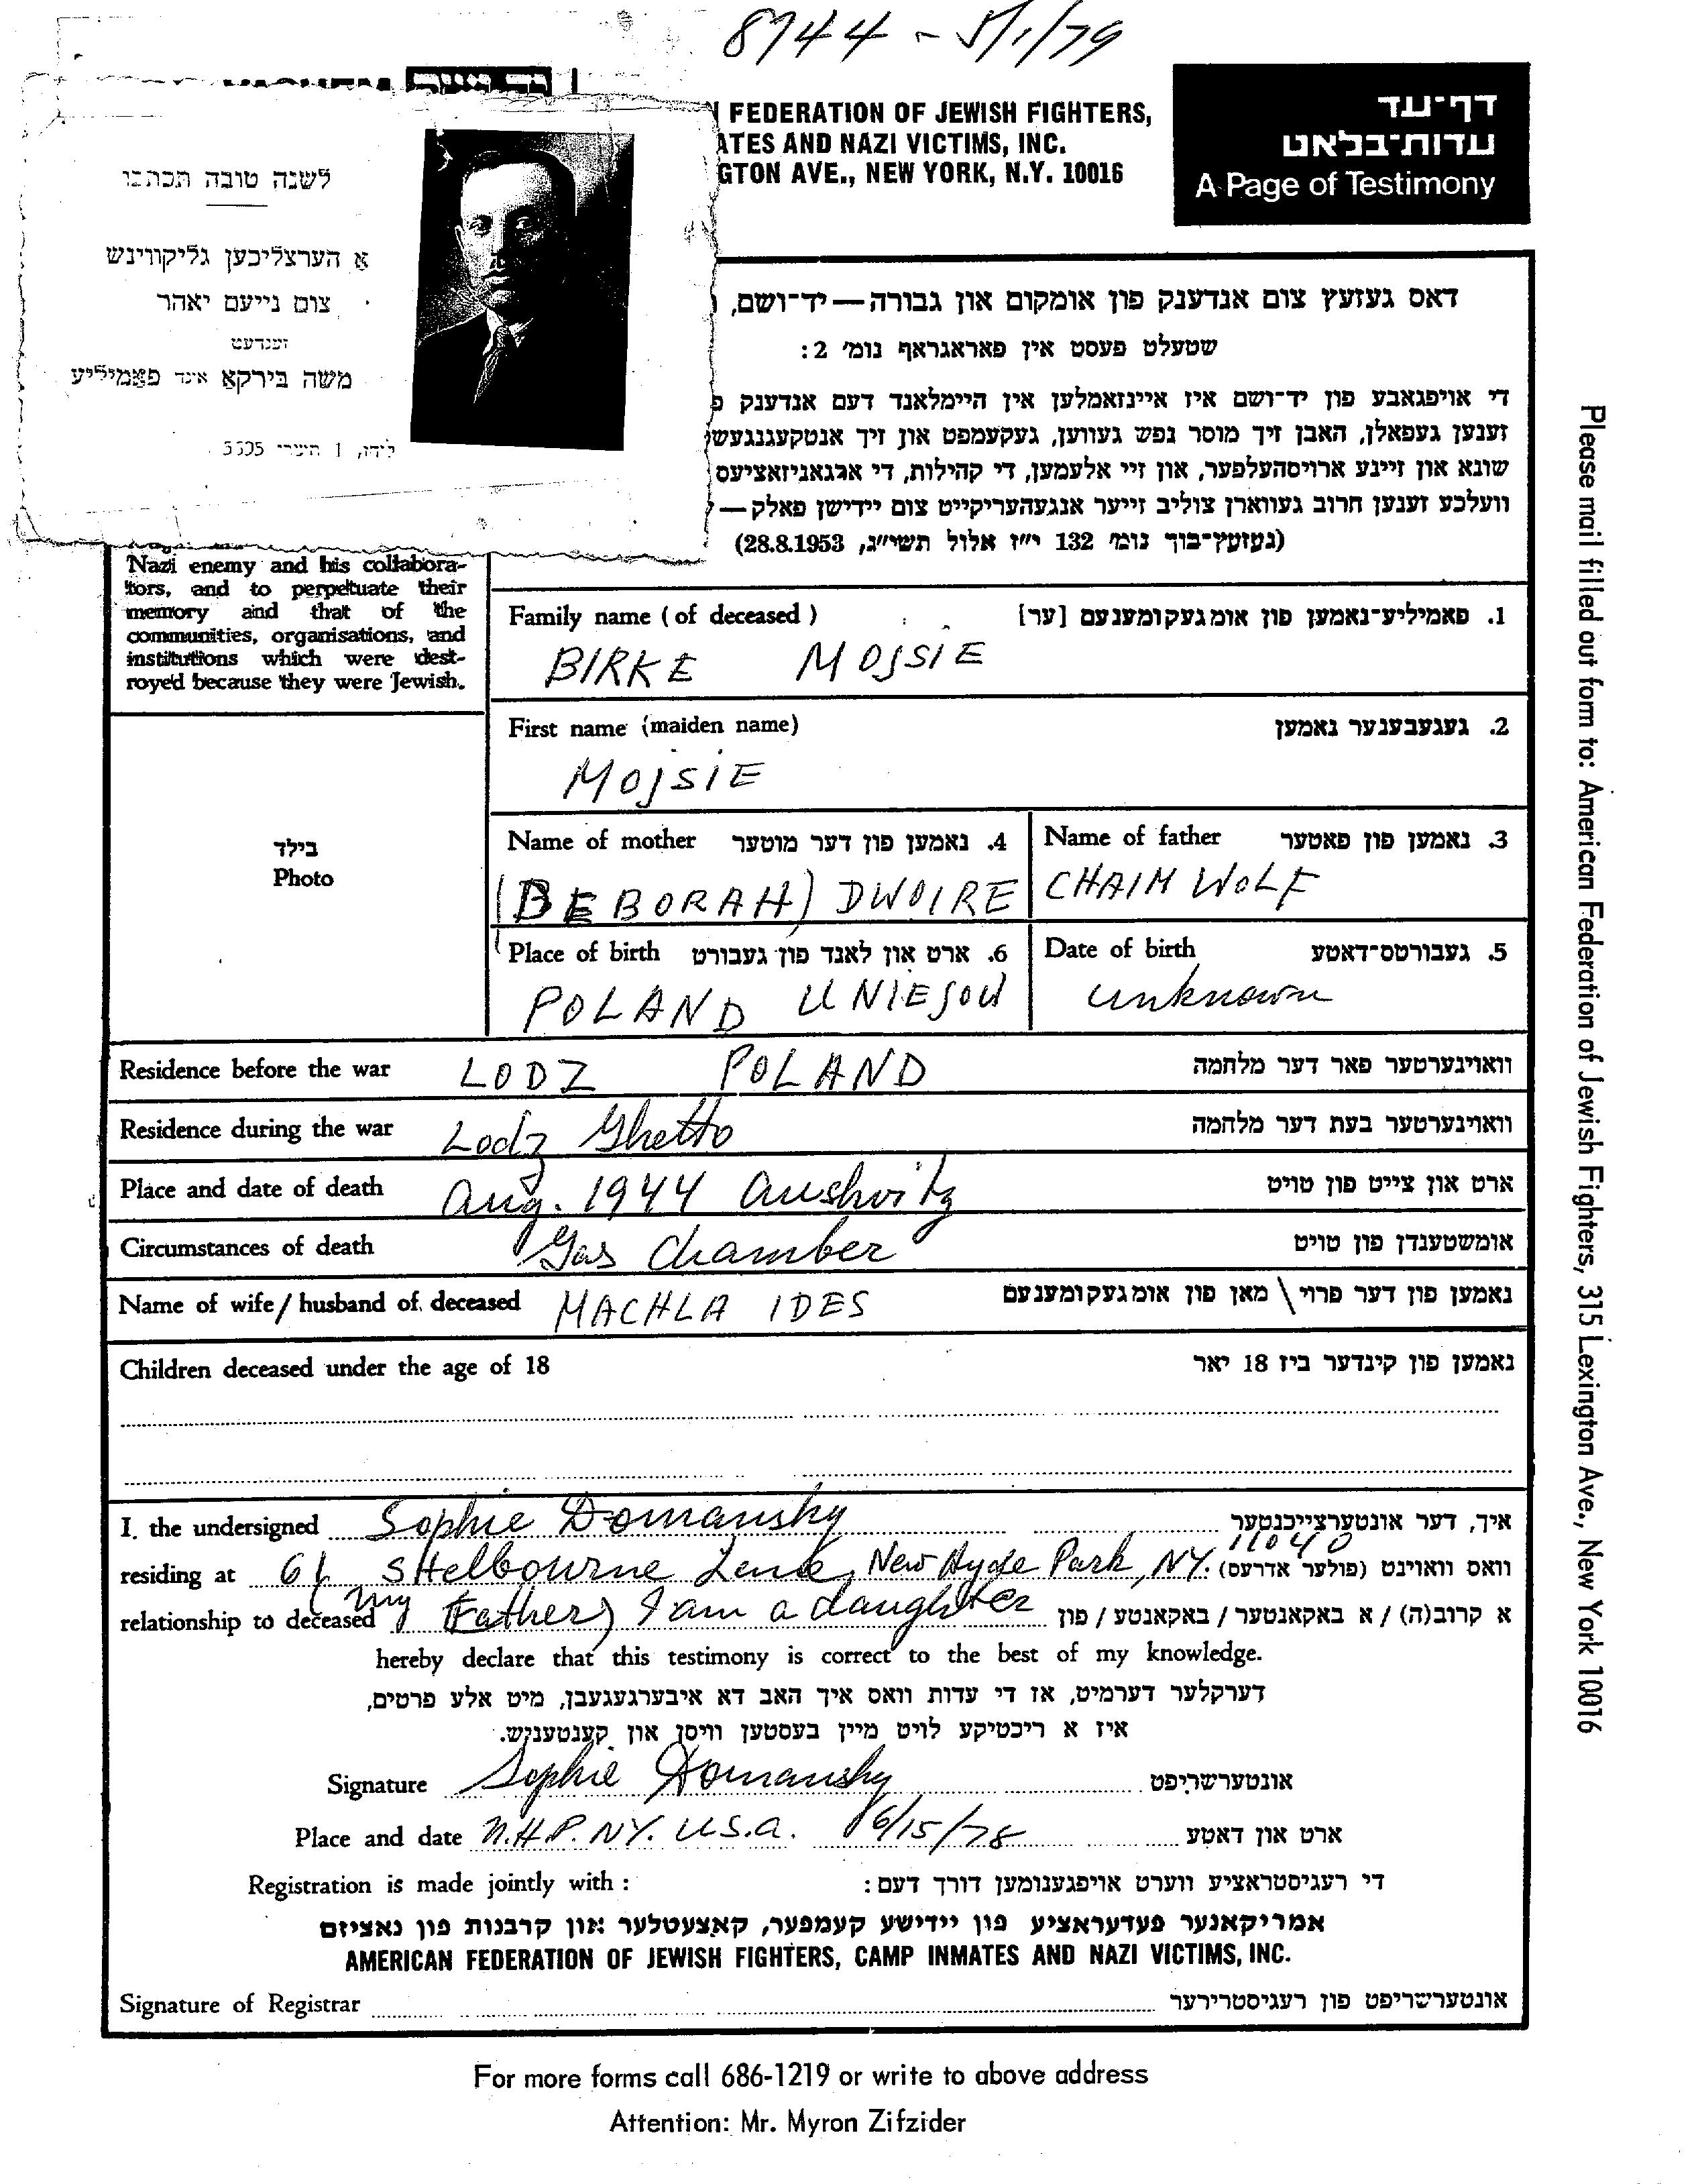 8744 - 5/1/79
יד ושם
FEDERATION OF JEWISH FIGHTERS,
ATES AND NAZI VICTIMS, INC.
GTON AVE., NEW YORK, N.Y. 10016
דף־עד
עדות־בלאט
A Page of Testimony
לשנה טובה תכתבו
א הערצליכען גליקווינש
צום נייעם יאהר
זענדעט
משה בירקא אינד פאמיליע
לידז, 1 תשרי 5695
דאס געזעץ צום אנדענק פון אומקום און גבורה — יד־ושם,
שטעלט פעסט אין פאראגראף נומ׳ 2:
די אויפגאבע פון יד־ושם איז איינזאמלען אין היימלאנד דעם אנדענק פ
זענען געפאלן, האבן זיך מוסר נפש געווען, געקעמפט און זיך אנטקעגנגעש
שונא און זיינע ארויסהעלפער, און זיי אלעמען, די קהילות, די ארגאניזאציעס
וועלכע זענען חרוב געווארן צוליב זייער אנגעהעריקייט צום יידישן פאלק —
(געזעץ־בוך נומ׳ 132 י״ז אלול תשי״ג, 28.8.1953)
Nazi enemy and his collabora-
tors, and to perpetuate their
memory and that of the
communities, organisations, and
institutions which were dest-
royed because they were Jewish.
Family name (of deceased) 1. פאמיליע־נאמען פון אומגעקומענעם [ער]
BIRKE MOJSIE
First name (maiden name) 2. געגעבענער נאמען
MOJSIE
בילד
Photo
Name of mother 4. נאמען פון דער מוטער Name of father 3. נאמען פון פאטער
(DEBORAH) DWOIRE CHAIM WOLF
Place of birth 6. ארט און לאנד פון געבורט Date of birth 5. געבורטס־דאטע
POLAND UNIEJOW unknown
Residence before the war LODZ POLAND וואוינערטער פאר דער מלחמה
Residence during the war Lodz Ghetto וואוינערטער בעת דער מלחמה
Place and date of death Aug. 1944 Aushvitz ארט און צייט פון טויט
Circumstances of death Gas Chamber אומשטענדן פון טויט
Name of wife / husband of deceased MACHLA IDES נאמען פון דער פרוי \ מאן פון אומגעקומענעם
Children deceased under the age of 18 נאמען פון קינדער ביז 18 יאר
I, the undersigned Sophie Domansky איך, דער אונטערצייכנטער
11040
residing at 61 SHelbourne Lane, New Hyde Park, NY. וואס וואוינט (פולער אדרעס)
relationship to deceased (My Father) I am a daughter א קרוב(ה) / א באקאנטער / באקאנטע / פון
hereby declare that this testimony is correct to the best of my knowledge.
דערקלער דערמיט, אז די עדות וואס איך האב דא איבערגעגעבן, מיט אלע פרטים,
איז א ריכטיקע לויט מיין בעסטען וויסן און קענטעניש.
Signature Sophie Domansky אונטערשריפט
Place and date N.H.P. NY. U.S.A. 6/15/78 ארט און דאטע
Registration is made jointly with : די רעגיסטראציע ווערט אויפגענומען דורך דעם :
אמריקאנער פעדעראציע פון יידישע קעמפער, קאצעטלער און קרבנות פון נאציזם
AMERICAN FEDERATION OF JEWISH FIGHTERS, CAMP INMATES AND NAZI VICTIMS, INC.
Signature of Registrar אונטערשריפט פון רעגיסטרירער
For more forms call 686-1219 or write to above address
Attention: Mr. Myron Zifzider
Please mail filled out form to: American Federation of Jewish Fighters, 315 Lexington Ave., New York 10016